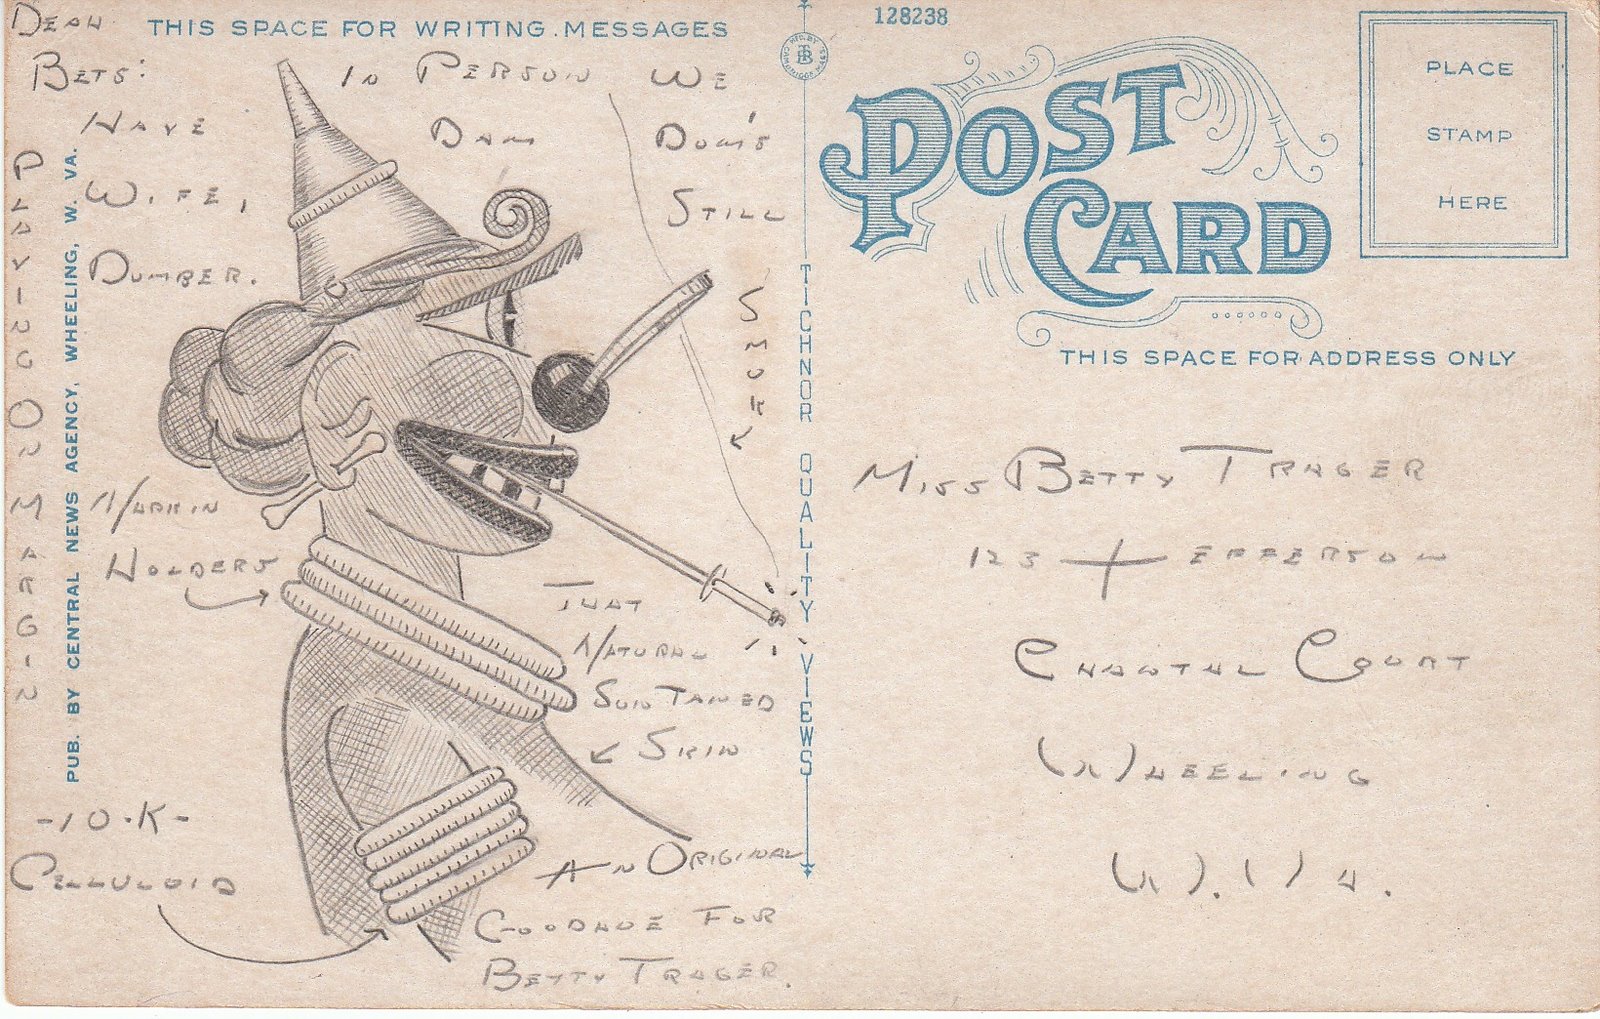 DEAR
BETS:
THIS SPACE FOR WRITING MESSAGES
IN PERSON WE
HAVE DAM
WIFE, STILL
DUMBER.
SMOK
PLAYING ON MARGIN
PUB. BY CENTRAL NEWS AGENCY, WHEELING, W. VA.
NAPKIN
HOLDERS
THAT
NATURAL
SUN TANED
SKIN
-10-K-
CELLULOID
AN ORIGINAL
GOODHUE FOR
BETTY TRAGER.
TICHNOR QUALITY VIEWS
128238
POST
CARD
PLACE
STAMP
HERE
THIS SPACE FOR ADDRESS ONLY
MISS BETTY TRAGER
123 JEFFERSON
COURT
WHEELING
W. VA.